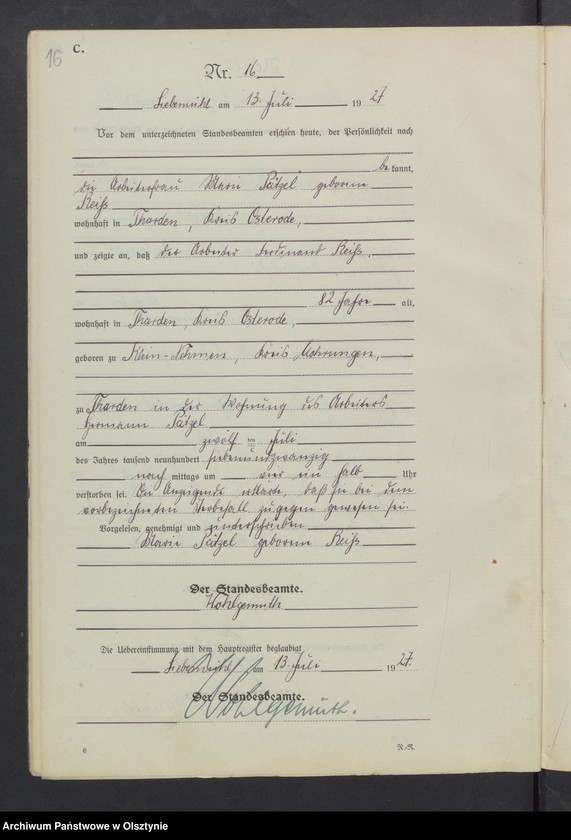 16
C.
Nr. 16
Liebemühl am 13. Juli 1927
Vor dem unterzeichneten Standesbeamten erschien heute, der Persönlichkeit nach
bekannt,
die Arbeiterfrau Marie Pätzel geborene
Reiß
wohnhaft in Tharden, Kreis Osterode,
und zeigte an, daß der Arbeiter Ferdinand Reiß,
82 Jahre alt,
wohnhaft in Tharden, Kreis Osterode,
geboren zu Klein- Kreis Mohrungen,
zu Tharden in der Wohnung des Arbeiters
Hermann Pätzel
am zwölf ten Juli
des Jahres tausend neunhundert siebenundzwanzig
nach mittags um vier ein halb Uhr
verstorben sei. Die Anzeigende erklärte, daß sie bei dem
vorbezeichneten Sterbefall zugegen gewesen sei.
Vorgelesen, genehmigt und unterschrieben
Marie Pätzel geborene Reiß
Der Standesbeamte.
Wohlgemuth
Die Uebereinstimmung mit dem Hauptregister beglaubigt
Liebemühl am 13. Juli 1927.
Der Standesbeamte.
Wohlgemuth.
6 R./R.
Archiwum Państwowe w Olsztynie